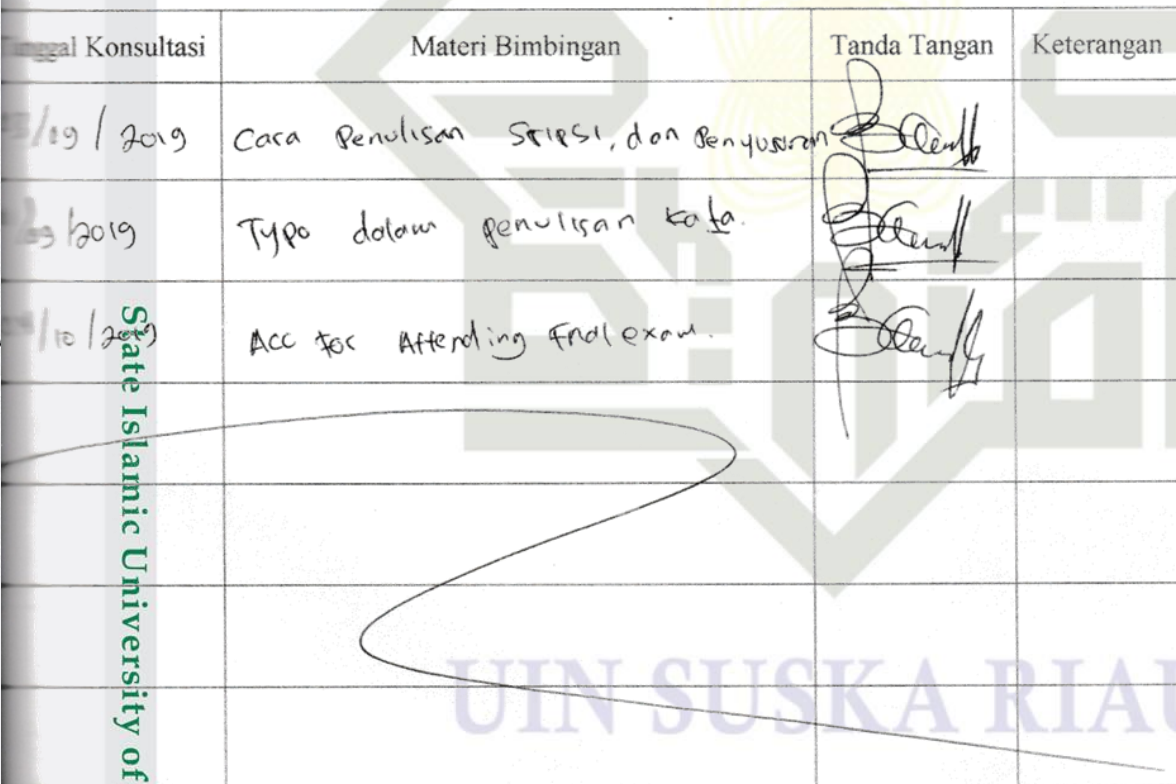 Konsultasi Materi Bimbingan Tanda Tangan Keterangan
/ 2019 Cara Penulisan Sripsi, dan Penyusunan
/2019 Typo dalam penulisan kata.
/10/2019 Acc for Attending Final exam.
State Islamic University of
UIN SUSKA RIAU